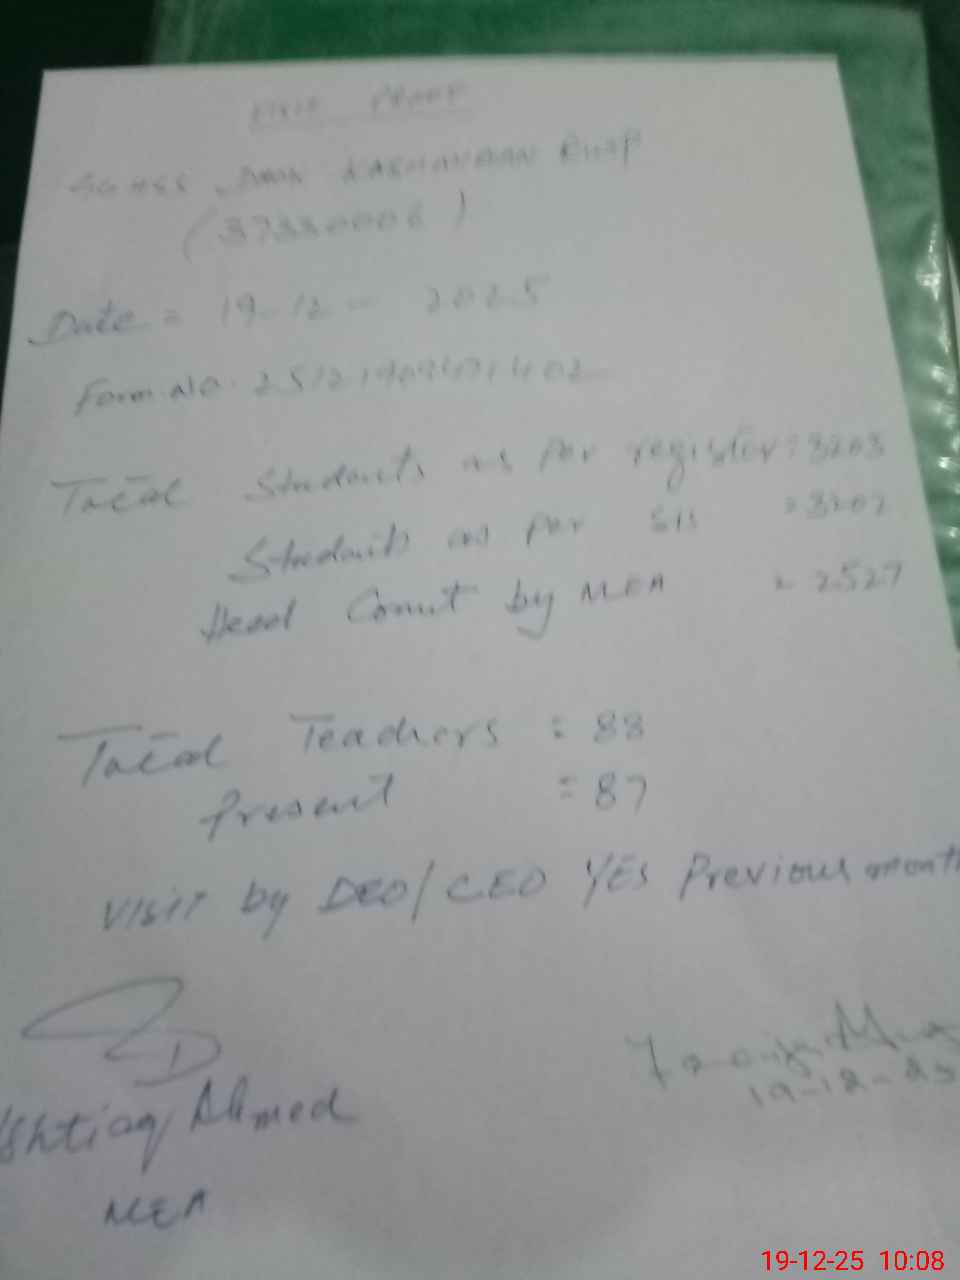 VISIT PROOF
GGHSS DHOK KASHMIRIAN RWP
(37330006)
Date = 19-12-2025
Form No.
Total Students as per register = 3203
Students as per SIS = 3202
Head Count by MEA = 2527
Total Teachers = 88
Present = 87
Visit by DEO/CEO YES Previous month
19-12-25
Ishtiaq Ahmed
MEA
19-12-25 10:08